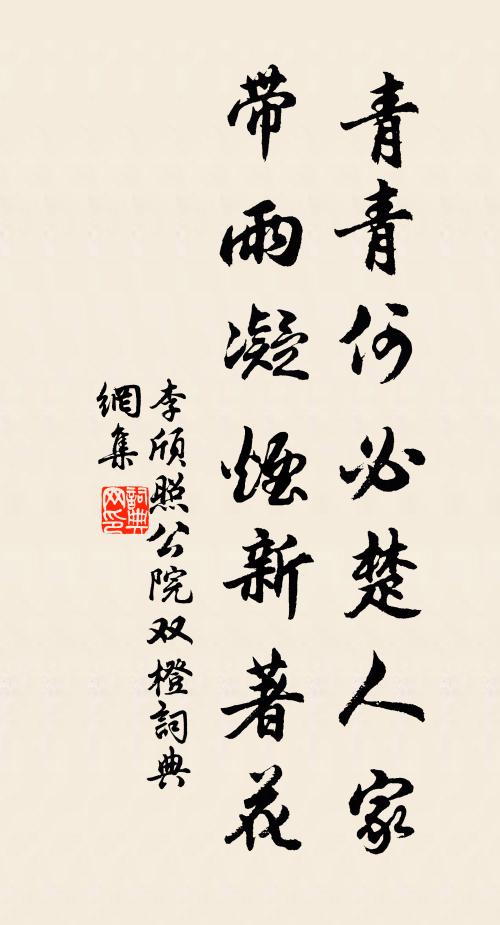 青青何必楚人家
带雨凝煙新著花
李頎照公院双橙詞典
網集
詞典
网印